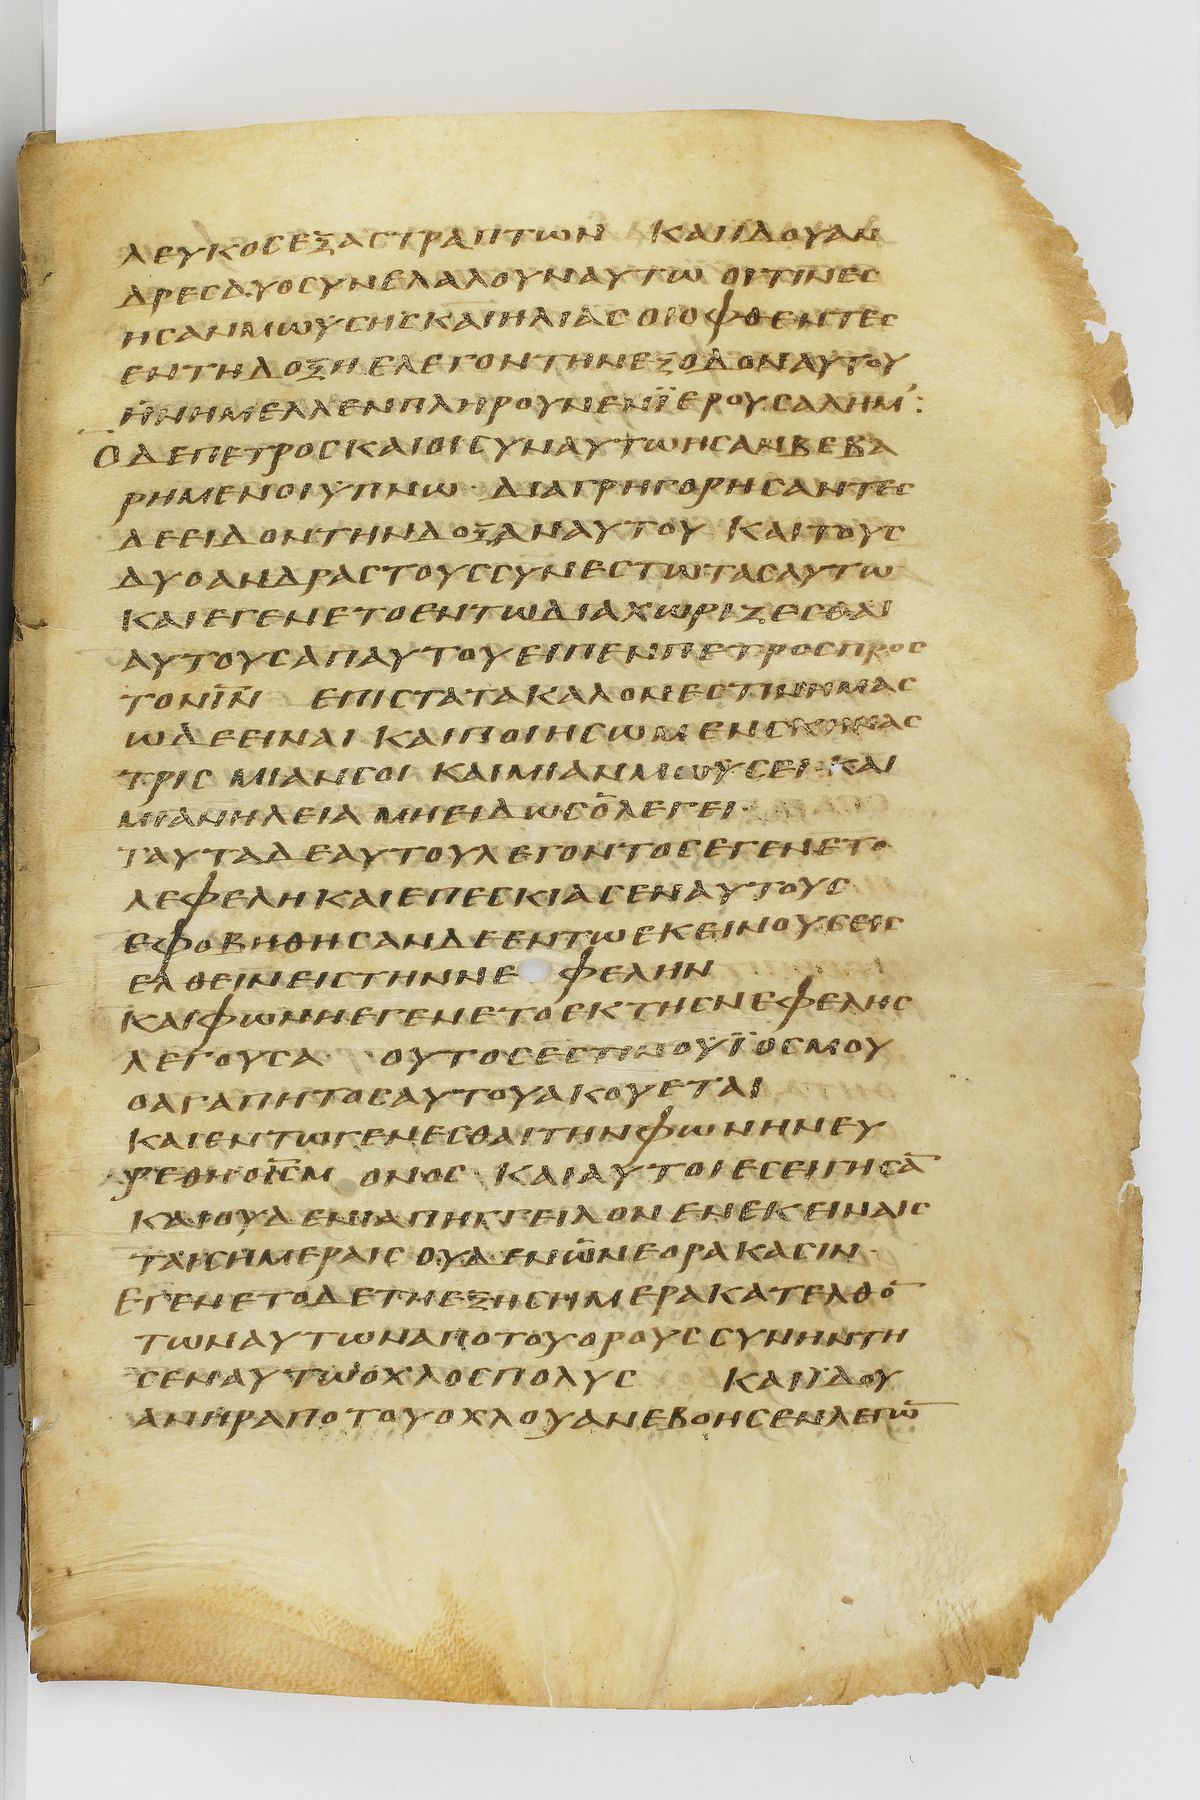 ΛΕΥΚΟϹΕΞΑϹΤΡΑΠΤΩΝ ΚΑΙΙΔΟΥΑΝ
ΔΡΕϹΔΥΟϹΥΝΕΛΑΛΟΥΝΑΥΤΩ ΟΙΤΙΝΕϹ
ΗϹΑΝΜΩΥϹΗϹΚΑΙΗΛΙΑϹΟΙΟΦΘΕΝΤΕϹ
ΕΝΤΗΔΟΞΗΕΛΕΓΟΝΤΗΝΕΞΟΔΟΝΑΥΤΟΥ
ΗΝΗΜΕΛΛΕΝΠΛΗΡΟΥΝΕΝΪΕΡΟΥϹΑΛΗΜ:
ΟΔΕΠΕΤΡΟϹΚΑΙΟΙϹΥΝΑΥΤΩΗϹΑΝΒΕΒΑ
ΡΗΜΕΝΟΙΥΠΝΩ· ΔΙΑΓΡΗΓΟΡΗϹΑΝΤΕϹ
ΔΕΕΙΔΟΝΤΗΝΔΟΞΑΝΑΥΤΟΥ ΚΑΙΤΟΥϹ
ΔΥΟΑΝΔΡΑϹΤΟΥϹϹΥΝΕϹΤΩΤΑϹΑΥΤΩ
ΚΑΙΕΓΕΝΕΤΟΕΝΤΩΔΙΑΧΩΡΙΖΕϹΘΑΙ
ΑΥΤΟΥϹΑΠΑΥΤΟΥΕΙΠΕΝΠΕΤΡΟϹΠΡΟϹ
ΤΟΝΙΝ̅ ΕΠΙϹΤΑΤΑΚΑΛΟΝΕϹΤΙΝΗΜΑϹ
ΩΔΕΕΙΝΑΙ ΚΑΙΠΟΙΗϹΩΜΕΝϹΚΗΝΑϹ
ΤΡΙϹ ΜΙΑΝϹΟΙ ΚΑΙΜΙΑΝΜΩΥϹΕΙ· ΚΑΙ
ΜΙΑΝΗΛΕΙΑ ΜΗΕΙΔΩϹΟΛΕΓΕΙ·
ΤΑΥΤΑΔΕΑΥΤΟΥΛΕΓΟΝΤΟϹΕΓΕΝΕΤΟ
ΝΕΦΕΛΗΚΑΙΕΠΕϹΚΙΑϹΕΝΑΥΤΟΥϹ
ΕΦΟΒΗΘΗϹΑΝΔΕΕΝΤΩΕΚΕΙΝΟΥϹΕΙϹ
ΕΛΘΕΙΝΕΙϹΤΗΝΝΕΦΕΛΗΝ
ΚΑΙΦΩΝΗΕΓΕΝΕΤΟΕΚΤΗϹΝΕΦΕΛΗϹ
ΛΕΓΟΥϹΑ ΟΥΤΟϹΕϹΤΙΝΟΥΪΟϹΜΟΥ
ΟΑΓΑΠΗΤΟϹΑΥΤΟΥΑΚΟΥΕΤΑΙ
ΚΑΙΕΝΤΩΓΕΝΕϹΘΑΙΤΗΝΦΩΝΗΝΕΥ
ΡΕΘΗΟΙϹ̅Μ ΟΝΟϹ ΚΑΙΑΥΤΟΙΕϹΕΙΓΗϹΑ̅
ΚΑΙΟΥΔΕΝΙΑΠΗΓΓΕΙΛΟΝΕΝΕΚΕΙΝΑΙϹ
ΤΑΙϹΗΜΕΡΑΙϹΟΥΔΕΝΩΝΕΟΡΑΚΑϹΙΝ·
ΕΓΕΝΕΤΟΔΕΤΗΕΞΗϹΗΜΕΡΑΚΑΤΕΛΘΟ̅
ΤΩΝΑΥΤΩΝΑΠΟΤΟΥΟΡΟΥϹϹΥΝΗΝΤΗ
ϹΕΝΑΥΤΩΟΧΛΟϹΠΟΛΥϹ ΚΑΙΙΔΟΥ
ΑΝΗΡΑΠΟΤΟΥΟΧΛΟΥΑΝΕΒΟΗϹΕΝΛΕΓΩ̅